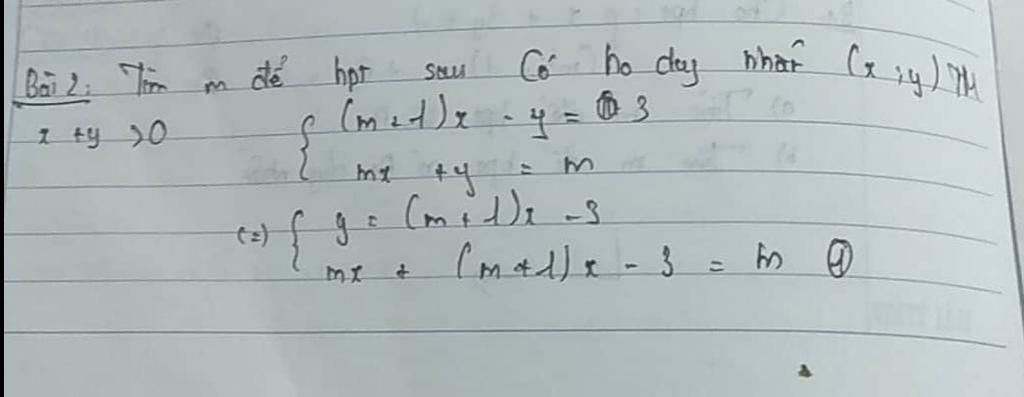 Bài 2: Tìm m để hpt sau Có no duy nhất (x ; y) TM
x + y > 0 { (m + 1)x - y = 3
mx + y = m
(=) { y = (m + 1)x - 3
mx + (m + 1)x - 3 = m ①